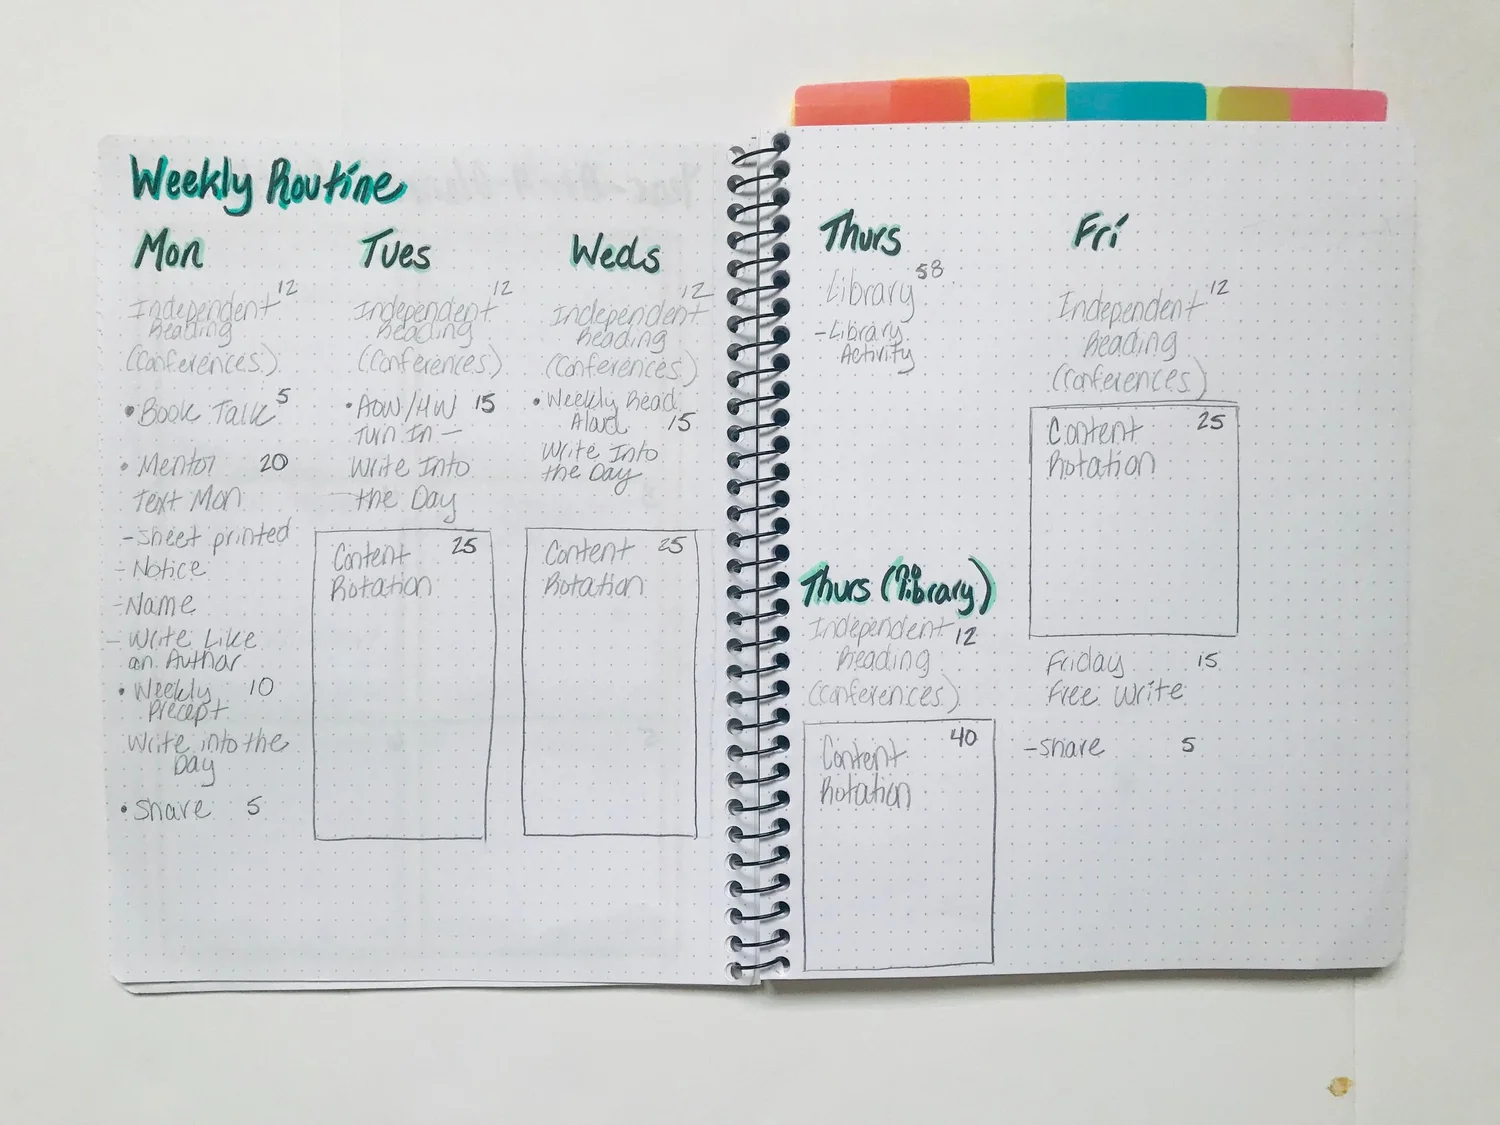 Weekly Routine
Mon
Independent 12
Reading
(Conferences)
• Book Talk 5
• Mentor 20
Text Mon
- sheet printed
- Notice
- Name
- Write Like
an Author
• Weekly 10
Precept
Write into the
Day
• Share 5
Tues
Independent 12
Reading
(Conferences)
• AOW/HW 15
Turn In -
Write Into
the Day
Content 25
Rotation
Weds
Independent 12
Reading
(Conferences)
• Weekly Read
Aloud 15
Write Into
the Day
Content 25
Rotation
Thurs
Library 58
- Library
Activity
Thurs (no library)
Independent 12
Reading
(Conferences)
Content 40
Rotation
Fri
Independent 12
Reading
(Conferences)
Content 25
Rotation
Friday 15
Free Write
- share 5